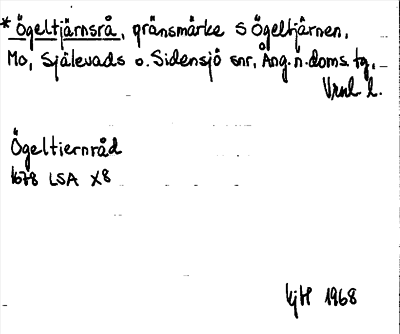 * Ögeltjärnsrå, gränsmärke S Ögeltjärnen,
Mo, Själevads o. Sidensjö snr, Ång. n. doms. tg.
l.
Ögeltiernråd
1678 LSA X8
1968